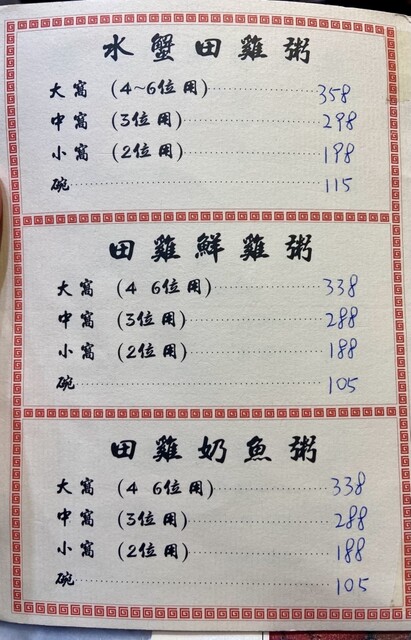 水蟹田雞粥
大窩 (4~6位用) 358
中窩 (3位用) 298
小窩 (2位用) 198
碗 115
田雞鮮雞粥
大窩 (4 6位用) 338
中窩 (3位用) 288
小窩 (2位用) 188
碗 105
田雞奶魚粥
大窩 (4 6位用) 338
中窩 (3位用) 288
小窩 (2位用) 188
碗 105